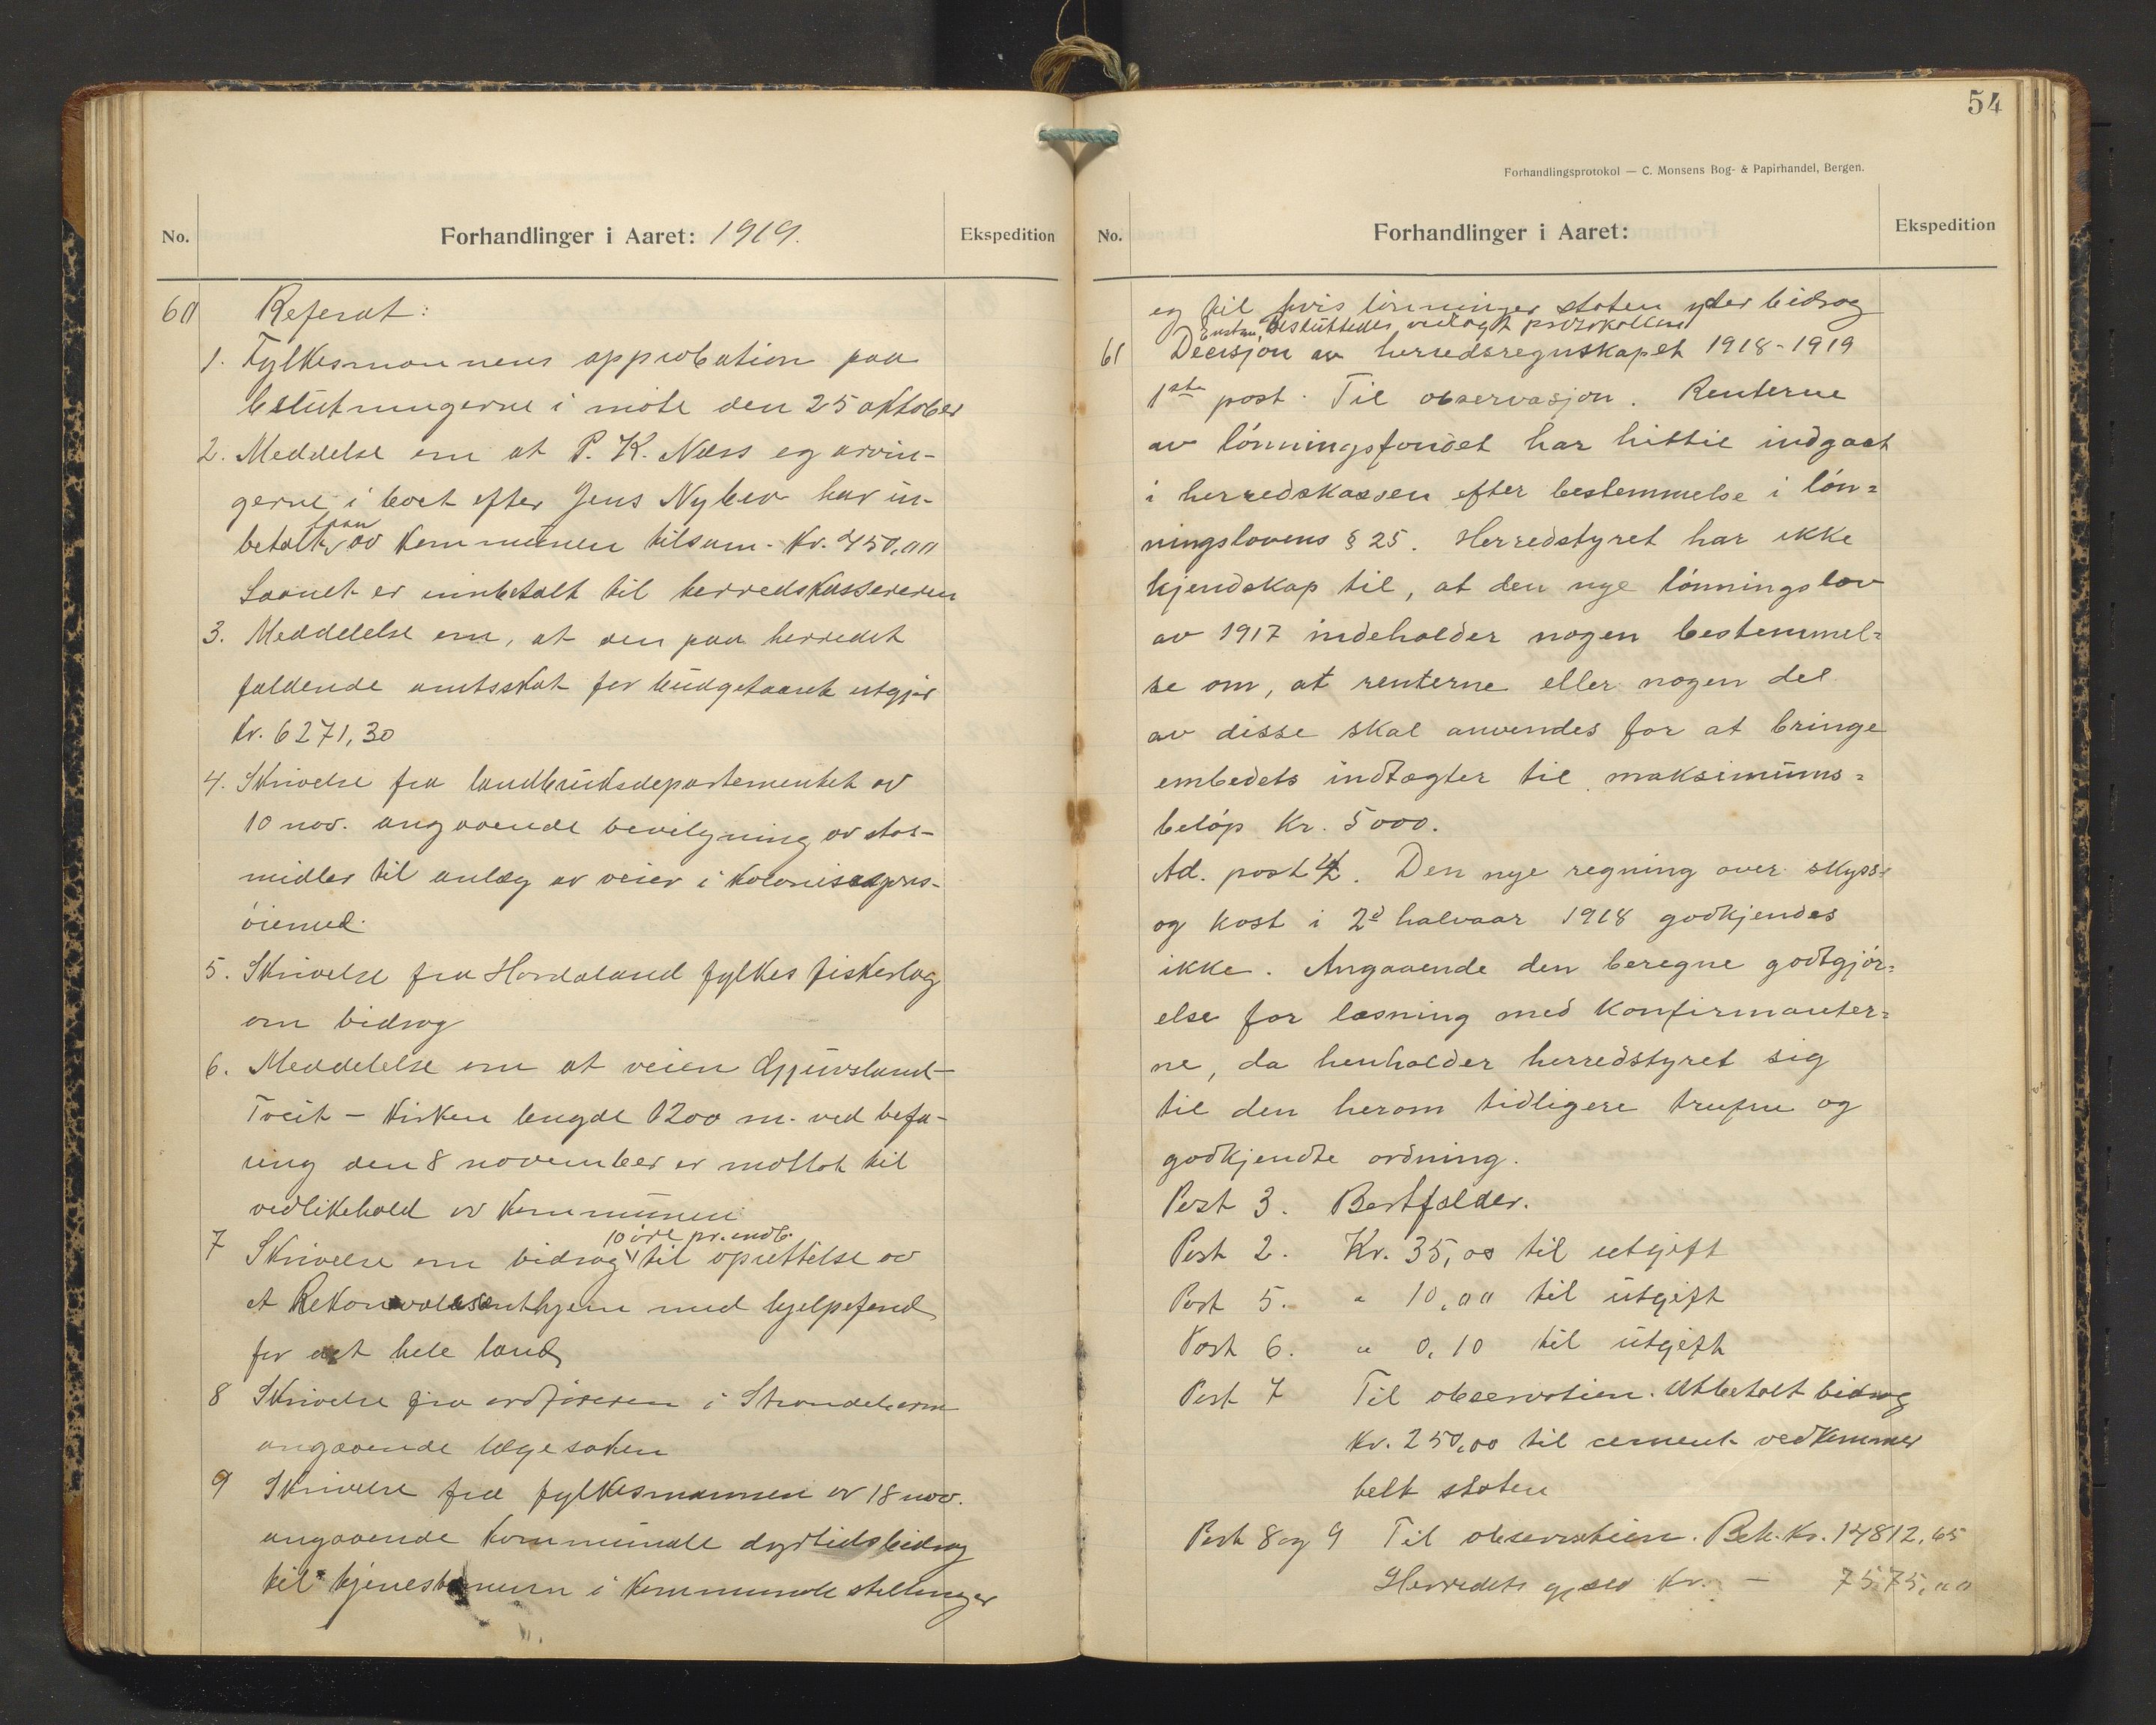 No.
Forhandlinger i Aaret: 1919.
Ekspedition
60 Referat:
1. Fylkesmannens approbation paa
beslutningerne i möte den 25 oktober
2. Meddelse om at P. K. Næss og arvin-
gerne i boet efter Jens Nybær har in-
laan
betalt av Kommunen tilsam. Kr. 450,00
Laanet er innbetalt til herredskassereren
3. Meddelelse om, at den paa herredet
faldende amtsskat for budgetaaret utgjør
Kr. 6271,30
4. Skrivelse fra landbruksdepartementet av
10 nov. angaaende bevilgning av stats-
midler til anlæg av veier i kolonisasjons-
öiemed.
5. Skrivelse fra Hordaland fylkes fiskerlag
om bidrag
6. Meddelelse om at veien Gjuvsland-
Tveit - Kirken lengde 1200 m. ved befa-
ring den 8 november er mottat til
vedlikehold av Kommunen
10 öre pr. indb.
7 Skrivelse om bidrag til oprettelse av
et Rekonvalesenthjem med hjelpefond
for det hele land
8 Skrivelse fra ordföreren i Strandebarm
angaaende lægesaken
9 Skrivelse fra fylkesmannen av 18 nov.
angaaende kommunale dyrtidsbidrag
til tjenestemenn i kommunale stillinger
54
Forhandlingsprotokol — C. Monsens Bog- & Papirhandel, Bergen.
No.
Forhandlinger i Aaret:
Ekspedition
og til hvis lönninger staten yder bidrag
Enst. besluttedes vedlagt protokollen
61 Decisjon av herredsregnskapet 1918-1919
1ste post. Til observasjon. Renterne
av lönningsfondet har hittil indgaat
i herredskassen efter bestemmelse i lön=
ningslovens § 25. Herredstyret har ikke
kjendskap til, at den nye lönningslov
av 1917 indeholder nogen bestemmel=
se om, at renterne eller nogen del
av disse skal anvendes for at bringe
embedets indtægter til maksimums=
belöp Kr. 5000.
Ad. post 4. Den nye regning over skyss=
og kost i 2d halvaar 1918 godkjendes
ikke. Angaaende den beregne godtgjör=
else for læsning med konfirmanter=
ne, da henholder herredstyret sig
til den herom tidligere trufne og
godkjendte ordning.
Post 3. Bortfalder.
Post 2. Kr. 35,00 til utgift
Post 5. " 10,00 til utgift
Post 6. " 0,10 til utgift
Post 7 Til observation. Utbetalt bidrag
Kr. 250,00 til cement vedkommer
helt staten
Post 8 og 9 Til observation. Beh. Kr. 14812,65
Herredets gjeld Kr. - 7575,00